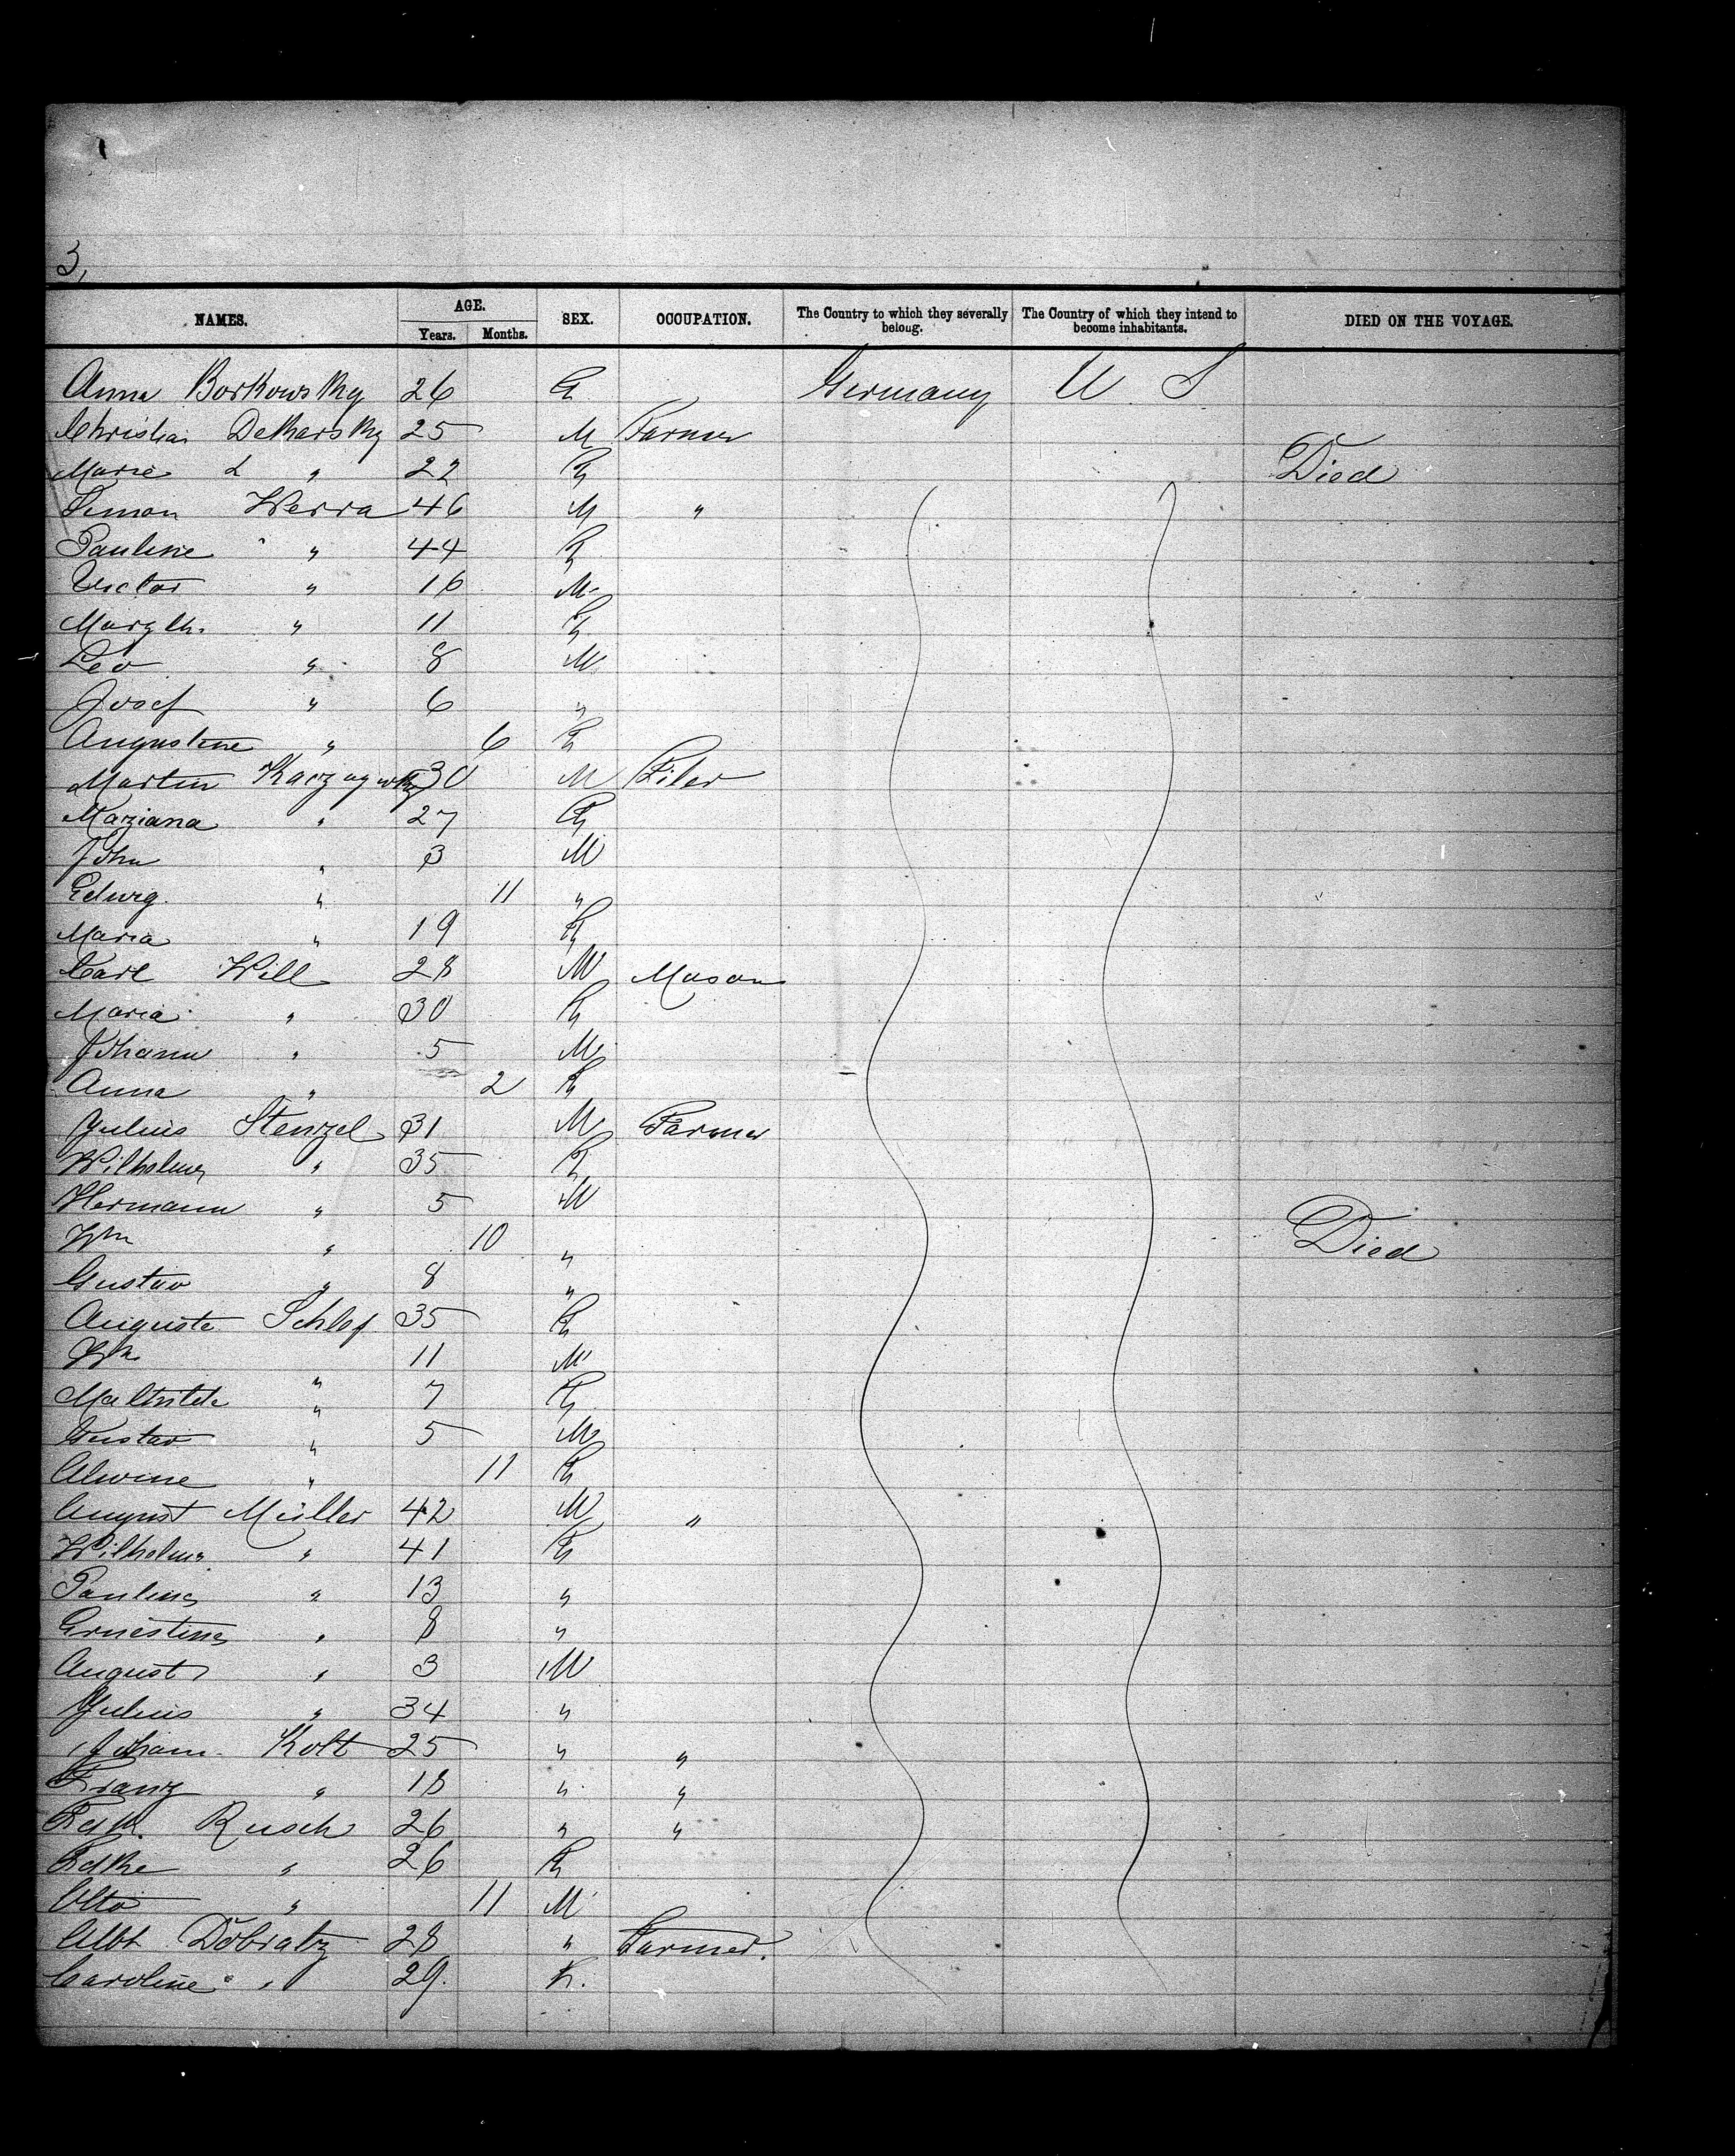 3,
NAMES. AGE. SEX. OCCUPATION. The Country to which they severally belong. The Country of which they intend to become inhabitants. DIED ON THE VOYAGE.
Years. Months.
Anna Borkowsky 26 F Germany U S
Christian Dekarsky 25 M Farmer
Marie L " 22 F Died
Simon Werra 46 M "
Pauline " 44 F
Victor " 16 M
Margth. " 11 F
Leo " 8 M
Josef " 6 "
Augustine " 6 F
Martin 30 M
Marziana " 27 F
John " 3 M
Edwig. " 11 "
Maria " 19 F
Carl Will 28 M Mason
Maria " 30 F
Johann " 5 M
Anna " 2 F
Julius Stenzel 31 M Farmer
Wilhelm " 35 F
Hermann " 5 M
Wm " 10 " Died
Gustav " 8 "
Auguste Schlef 35 F
Wm " 11 M
Mathilde " 7 F
Gustav " 5 M
Alwine " 11 F
August Müller 42 M "
Wilhelms " 41 F
Pauline " 13 "
Ernestine " 8 "
August " 3 M
Julius " 34 "
Johann Kolt 25 " "
Franz " 18 " "
Fdk. Rusch 26 " "
Fdke " 26 F
Otto " 11 M
Albt Dobratz 28 " Farmer.
Caroline " 29. F.